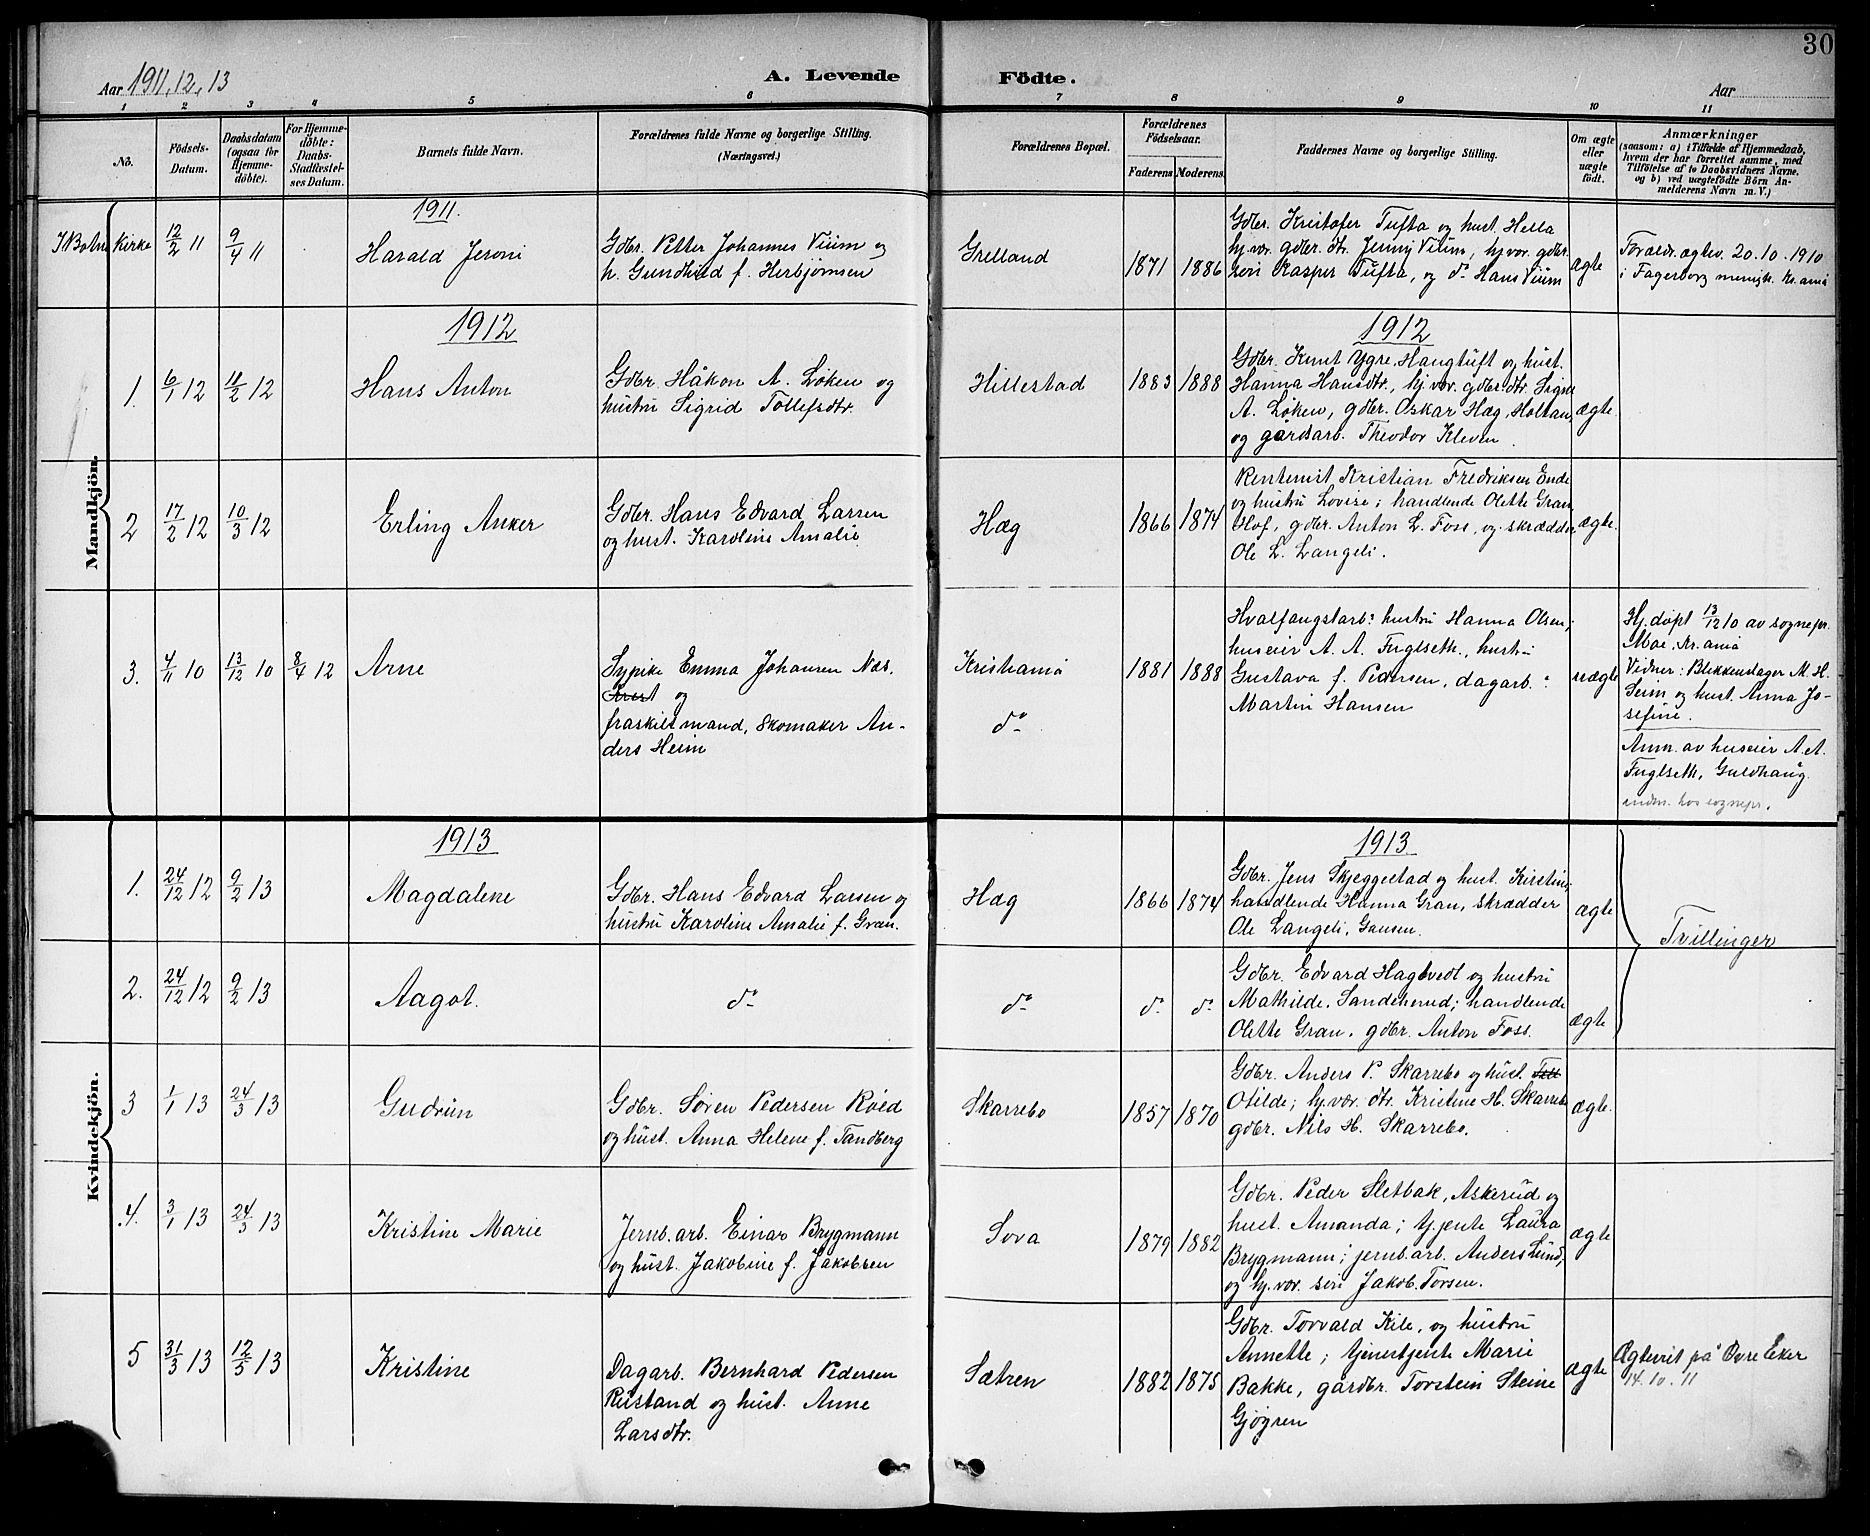 30
Aar 1911, 12, 13
A. Levende Födte.
Aar
1 2 3 4 5 6 7 8 9 10 11
No.
Födsels-Datum.
Daabsdatum (ogsaa for Hjemme-döbte).
For Hjemme-döbte: Daabs-Stadfæstel-ses Datum.
Barnets fulde Navn.
Forældrenes fulde Navne og borgerlige Stilling. (Næringsvei.)
Forældrenes Bopæl.
Forældrenes Födselsaar.
Faderens Moderens
Faddernes Navne og borgerlige Stilling.
Om ægte eller uægte födt.
Anmærkninger
(saasom: a) i Tilfælde af Hjemmedaab, hvem der har forrettet samme, med Tilföielse af to Daabsvidners Navne, og b) ved uægtefödte Börn An-melderens Navn m. V.)
Mandkjön.
1911.
I Botne Kirke
12/2 11
9/4 11
Harald Jeroni
Gdbr. Petter Johannes Vium og
h. Gundhild f. Herbjørnsen
Grelland
1871 1886
Gdbr. Kristofer Tufta og hust. Hella
hj.vær. gdbr. dtr. Jenny Vium, hj.vær. gdbr.
søn Kasper Tufta, og do Hans Vium
ægte
Foraldr. ægtev. 20.10.1910
i Fagerborg menigh. Kr.ania
1912
1912
1.
6/1 12
11/2 12
Hans Anton
Gdbr. Håkon A. Løken og
hustru Sigrid Tollefsdtr.
Hillestad
1883 1888
Gdbr. Knut Ygre, Haugtuft og hust.
Hanna Hansdtr., hj.vær. gdbr. dtr. Signe
A. Løken, gdbr. Oskar Hæg, Holtan,
og gårdsarb. Theodor Kleven.
ægte.
2
17/2 12
10/3 12
Erling Anker
Gdbr. Hans Edvard Larsen
og hust. Karoline Amalie
Hæg
1866 1874
Rentenist Kristian Fredriksen Ende
og hustru Lovise; handlende Olette Gran
Hof, gdbr. Anton L. Foss, og skrædder
Ole L. Langeli.
ægte.
3.
4/11 10
13/12 10
8/4 12
Arne
Sypike Emma Johansen Næs.
og
fraskilt mand, skomaker An-
ders Heim
Kristiania
do
1881 1888
Hvalfangstarb: hustru Hanna Olsen;
huseier A. A. Fuglseth, hustru
Gustava f. Pedersen, dagarb.:
Martin Hansen
uægte
Hj.døpt 13/12 10 av sognepr.
Moe, Kr.ania
Vidner: Blikkenslager M. H.
Seim og hust. Anna Jo-
sefine.
Anm. av huseier A. A.
Fuglseth, Guldhaug.
indm. hos sognepr.
Kvindekjön.
1913
1913
1.
24/12 12
9/2 13
Magdalene
Gdbr. Hans Edvard Larsen og
hustru Karoline Amalie f. Gran.
Hæg
1866 1874
Gdbr. Jens Skjeggestad og hust. Kirstine,
handlende Hanna Gran, skrædder
Ole Langeli, Gausen.
ægte
Tvillinger
2.
24/12 12
9/2 13
Aagot.
do
do
do do
Gdbr. Edvard Hagtvedt og hustru
Mathilde, Sandeherud; handlende
Olette Gran, gdbr. Anton Foss.
ægte
3
1/1 13
24/3 13
Gudrun
Gdbr. Søren Pedersen Røed
og hust. Anna Helene f. Tandberg
Skarrebo
1857 1870
Gdbr. Anders P. Skarrebo og hust.
Otilde; hj.vær. dtr. Kristine H. Skarrebo
gdbr. Nils H. Skarrebo.
ægte.
4.
3/1 13
24/3 13
Kristine Marie
Jernb.arb. Einar Brygmann
og hust. Jakobine f. Jakobsen
Sova
1879 1882
Gdbr. Peder Sletbak, Askerud og
hust. Amanda; tj.jente Laura
Brygmann; jernb.arb. Anders Lund,
og hj.vær. søn Jakob Torsen.
ægte
5
31/3 13
12/5 13
Kristine
Dagarb. Bernhard Pedersen
Rustand og hust. Anne
Larsdtr.
Sætren
1882 1875
Gdbr. Torvald Kile, og hustru
Annette; tjenestjente Marie
Bakke, gårdbr. Torstein Steine
Gjøgren
ægte
Ægteviet på Øvre Eker
14.10.11